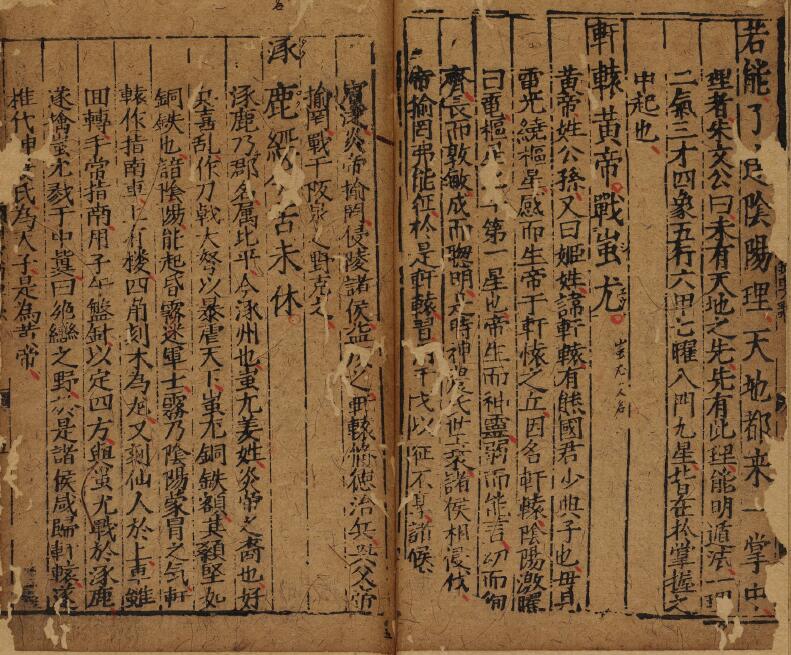 若能了達陰陽理天地都来一掌中
理者朱文公曰未有天地之先先有此理能明遁法一理
二氣三才四象五行六甲七曜八門九星皆在於掌握之
中起也
軒轅黄帝戰蚩尤
蚩尤人名
黄帝姓公孫又曰姬姓諱軒轅有熊國君少典子也母見
電光繞樞星感而生帝于軒轅之丘因名軒轅陰陽激曜
曰電樞是第一星也帝生而神靈弱而能言幼而徇
齊長而敦敏成而聰明是時神農氏世衰諸侯相侵伐
帝揄罔弗能征於是軒轅習用干戈以征不享諸侯
賓從炎帝揄罔侵陵諸侯益之軒轅脩徳治兵與炎帝
揄罔戰于阪泉之野克之
涿鹿經今苦未休
涿鹿乃郡名属北平今涿州也蚩尤姜姓炎帝之裔也好
兵喜乱作刀戟大弩以暴虐天下蚩尤銅鉄額其額堅如
銅鉄也諳陰陽能起昏霧迷軍士霧乃陰陽蒙冒之气軒
轅作指南車上有楼四角刻木為龙又刻仙人於上車雖
回轉手常指南用子午盤針以定四方與蚩尤戰於涿鹿
遂擒蚩尤戮于中冀曰絶轡之野於是諸侯咸歸軒轅遂
推代神農氏為天子是為黄帝